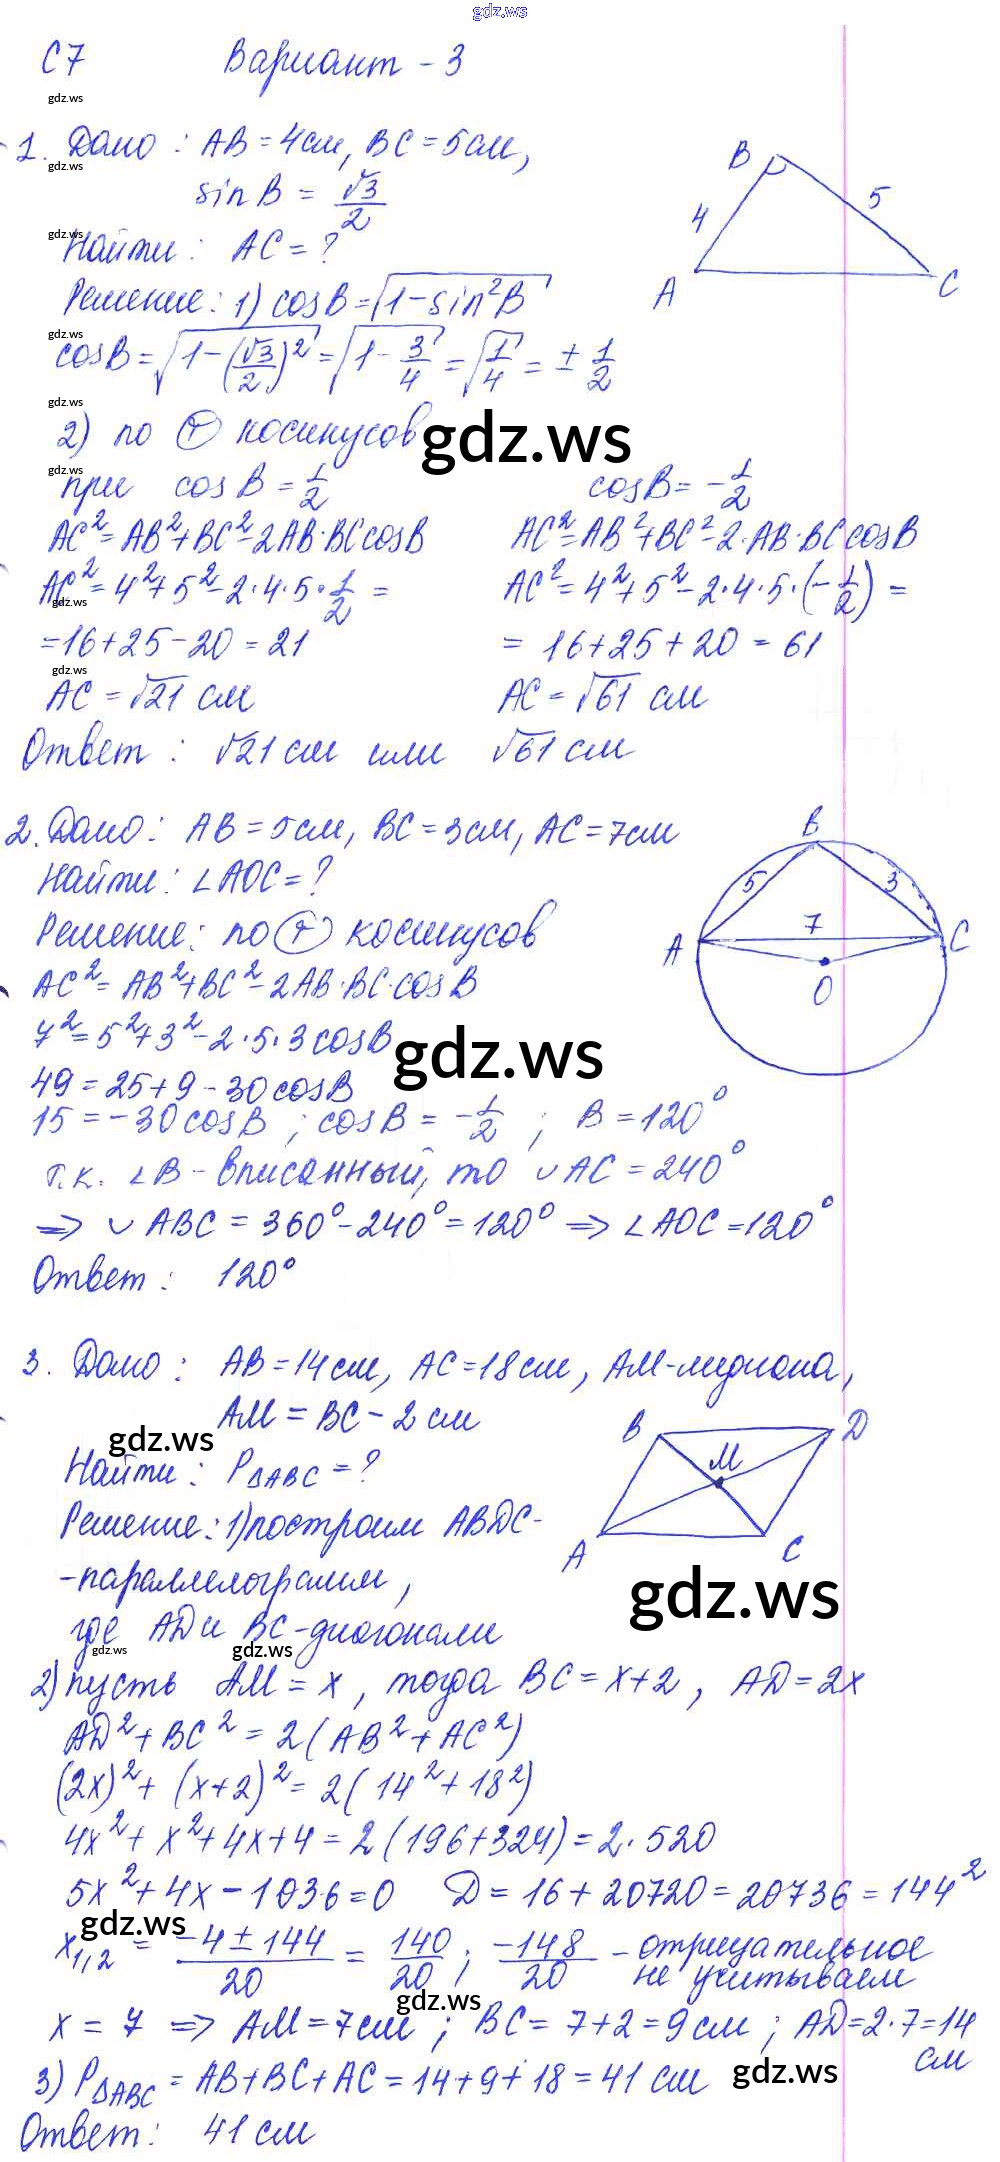 gdz.ws
С7 Вариант - 3
gdz.ws
1. Дано: AB = 4см, BC = 5см,
gdz.ws
sin B = √3/2
gdz.ws
Найти: AC = ?
Решение: 1) cosB = √(1-sin²B)
gdz.ws
cosB = √(1-(√3/2)²) = √(1-3/4) = √(1/4) = ± 1/2
gdz.ws
2) по т косинусов
gdz.ws
gdz.ws
при cos B = 1/2 cosB = -1/2
AC² = AB²+BC²-2AB·BC cosB AC² = AB²+BC²-2·AB·BC cosB
AC² = 4²+5²-2·4·5·1/2 = AC² = 4²+5²-2·4·5·(-1/2) =
gdz.ws
= 16+25-20 = 21 = 16+25+20 = 61
gdz.ws
AC = √21 см AC = √61 см
Ответ: √21 см или √61 см
B
4
5
A
C
2. Дано: AB = 5см, BC = 3см, AC = 7см
Найти: ∠AOC = ?
Решение: по т косинусов
AC² = AB²+BC²-2AB·BC·cosB
7² = 5²+3²-2·5·3cosB
gdz.ws
49 = 25+9-30cosB
15 = -30cosB ; cosB = -1/2 ; B = 120°
т.к. ∠B - вписанный, то ∪AC = 240°
=> ∪ABC = 360°-240° = 120° => ∠AOC = 120°
Ответ: 120°
B
5
3
7
A
C
O
3. Дано: AB = 14см, AC = 18см, AM-медиана,
AM = BC - 2 см
gdz.ws
Найти: P△ABC = ?
Решение: 1) построим ABDC-
-параллелограмм,
где AD и BC-диагонали
gdz.ws
gdz.ws
B
D
M
A
C
gdz.ws
2) пусть AM = x, тогда BC = x+2, AD = 2x
AD²+BC² = 2(AB²+AC²)
(2x)²+(x+2)² = 2(14²+18²)
4x²+x²+4x+4 = 2(196+324) = 2·520
5x²+4x-1036=0 D = 16+20720 = 20736 = 144²
gdz.ws
x1,2 = (-4±144)/20 = 140/20 ; -148/20 - отрицательное
не учитываем
gdz.ws
x = 7 => AM = 7см ; BC = 7+2 = 9 см ; AD = 2·7 = 14
см
gdz.ws
3) P△ABC = AB+BC+AC = 14+9+18 = 41 см
Ответ: 41 см